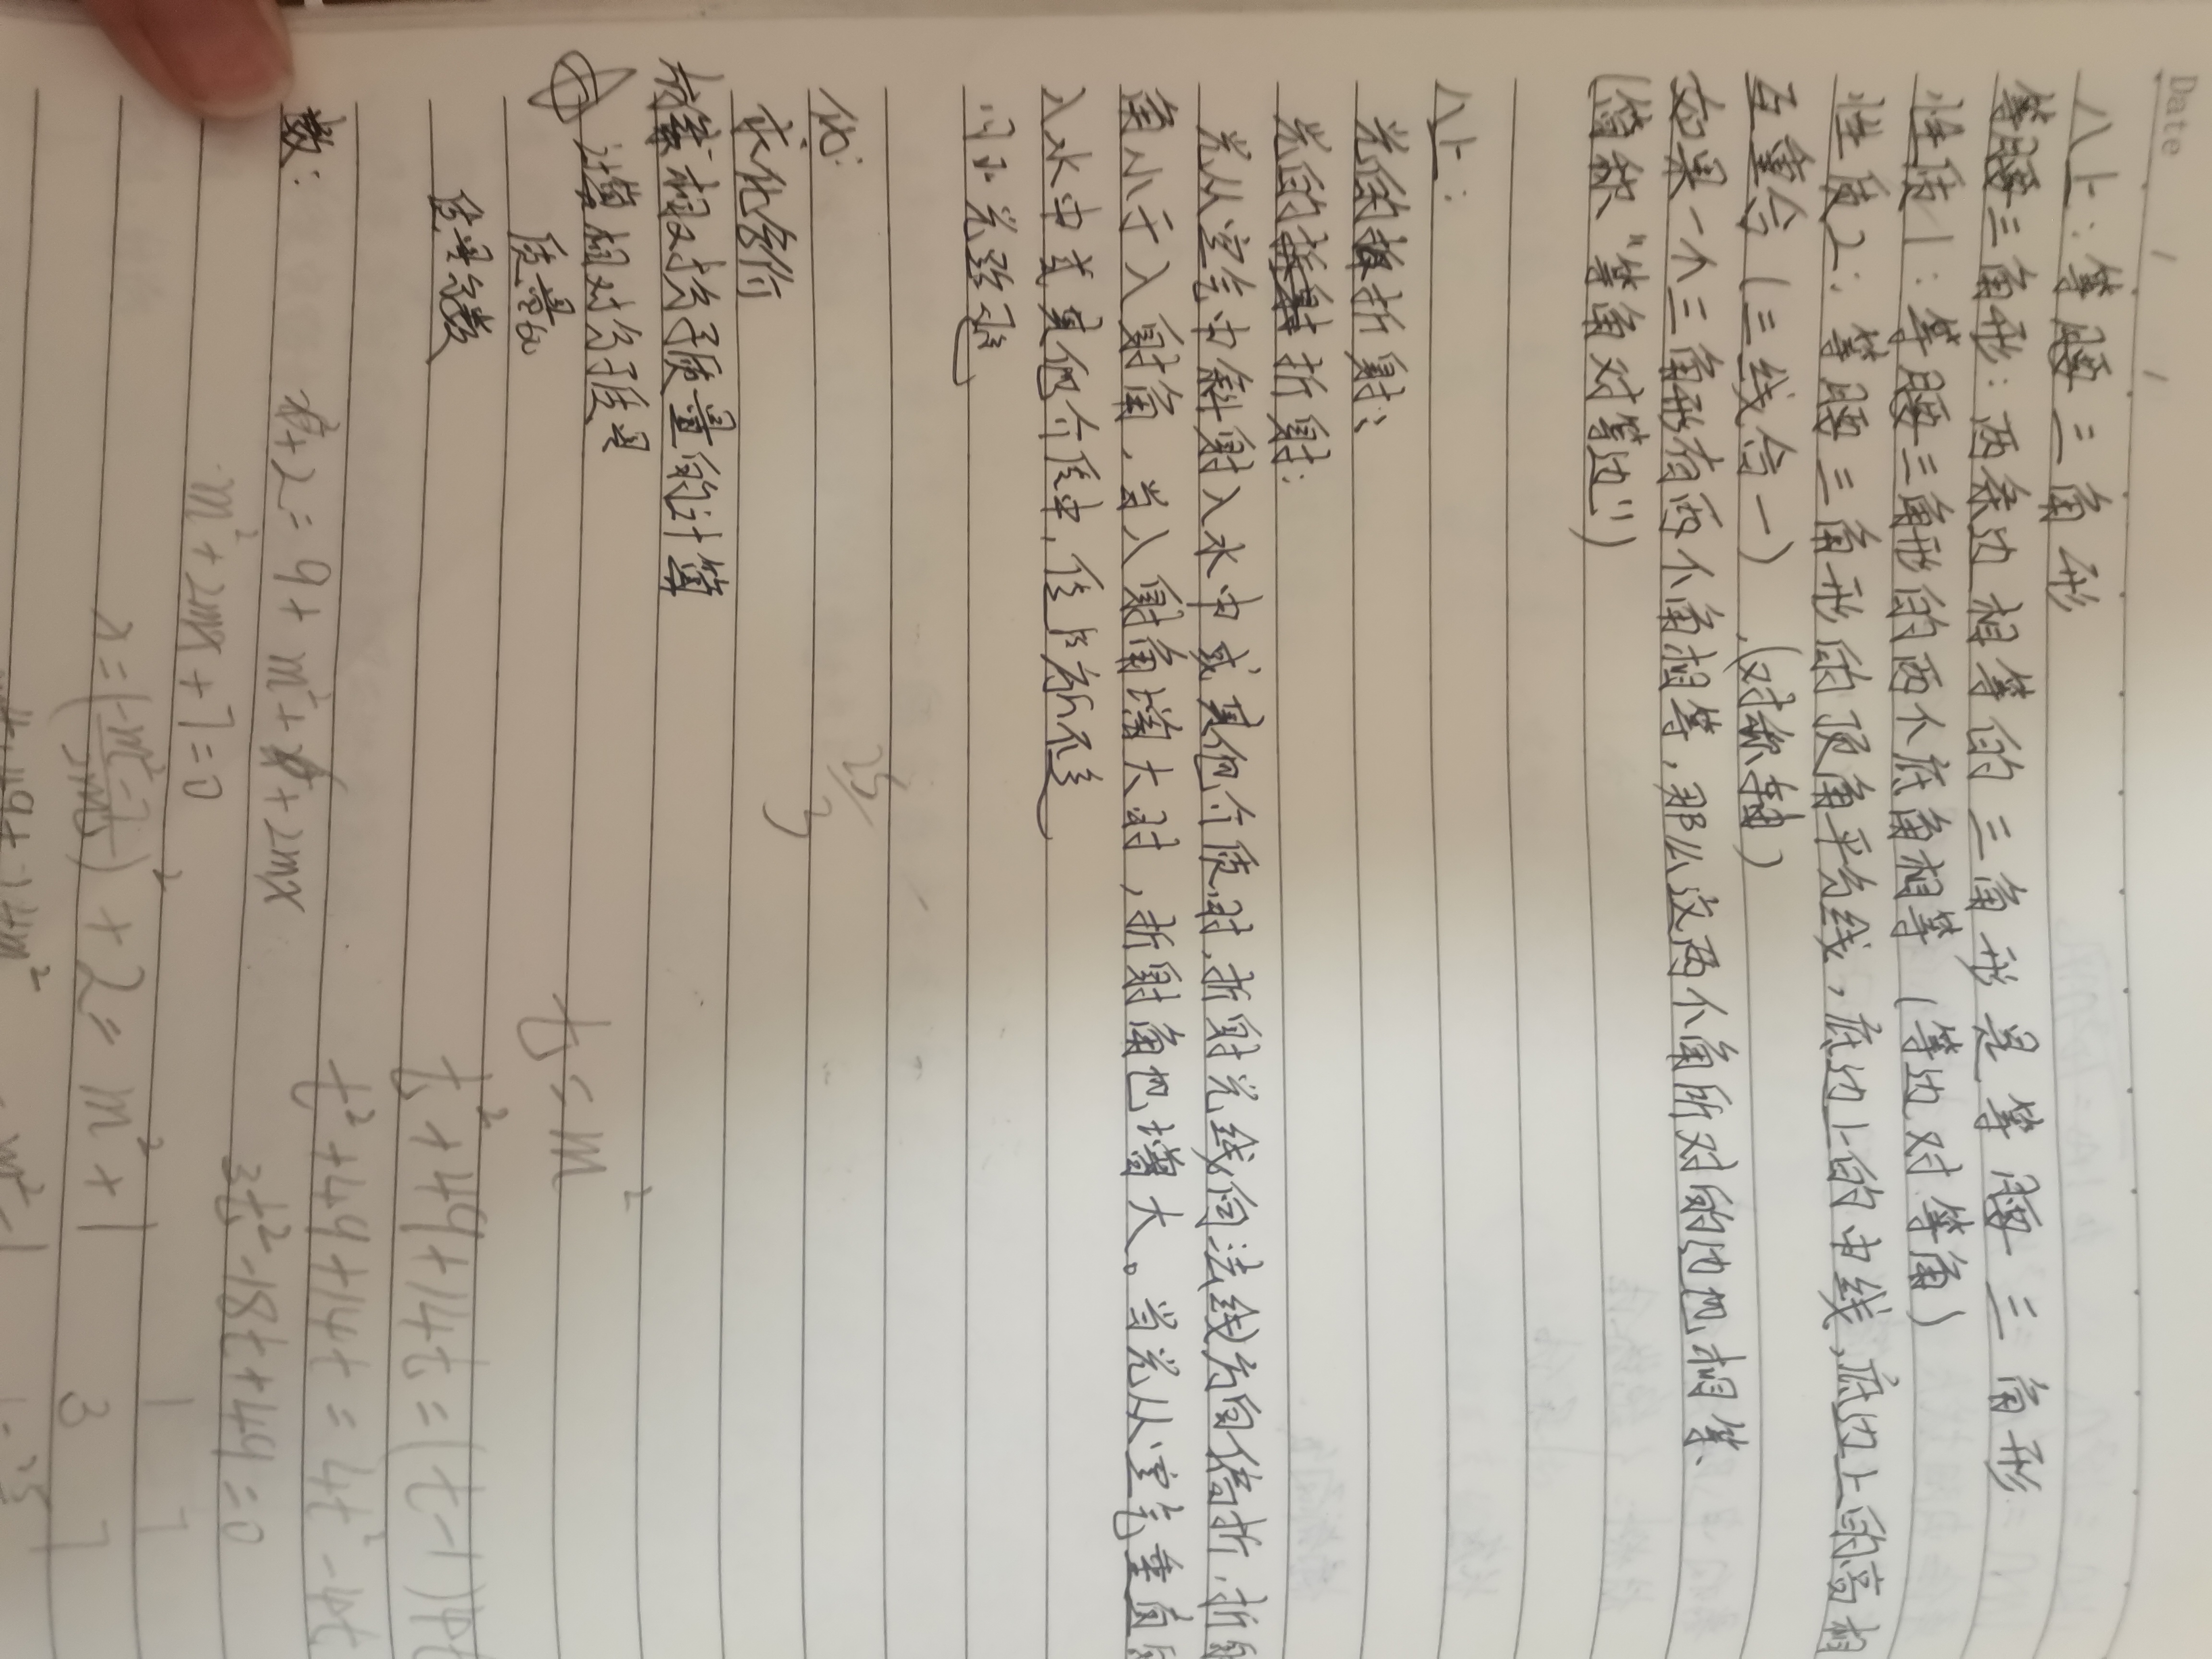 Date
八上：等腰三角形
等腰三角形：两条边相等的三角形是等腰三角形
性质1：等腰三角形的两个底角相等（等边对等角）
性质2：等腰三角形的顶角平分线，底边上的中线，底边上的高相
互重合（三线合一），（对称轴）
如果一个三角形有两个角相等，那么这两个角所对的边也相等
（简称“等角对等边”）
八上：
光的折射：
光的折射：
光从空气中斜射入水中或其他介质时，折射光线向法线方向偏折，折射
角小于入射角，当入射角增大时，折射角也增大。当光从空气垂直
入水中或其他介质中，传播方向不变
25/3
化：
求化合价
方案相对分子质量的计算
计算相对分子质量
质量比
质量分数
t=m²
t²+49+14t=(t-1)4t
t²+49+14t=4t²-4t
3t²-18t+49=0
数：
x²+2=9+m²+x²+2mx
m²+2mx+7=0
1 7
3 7